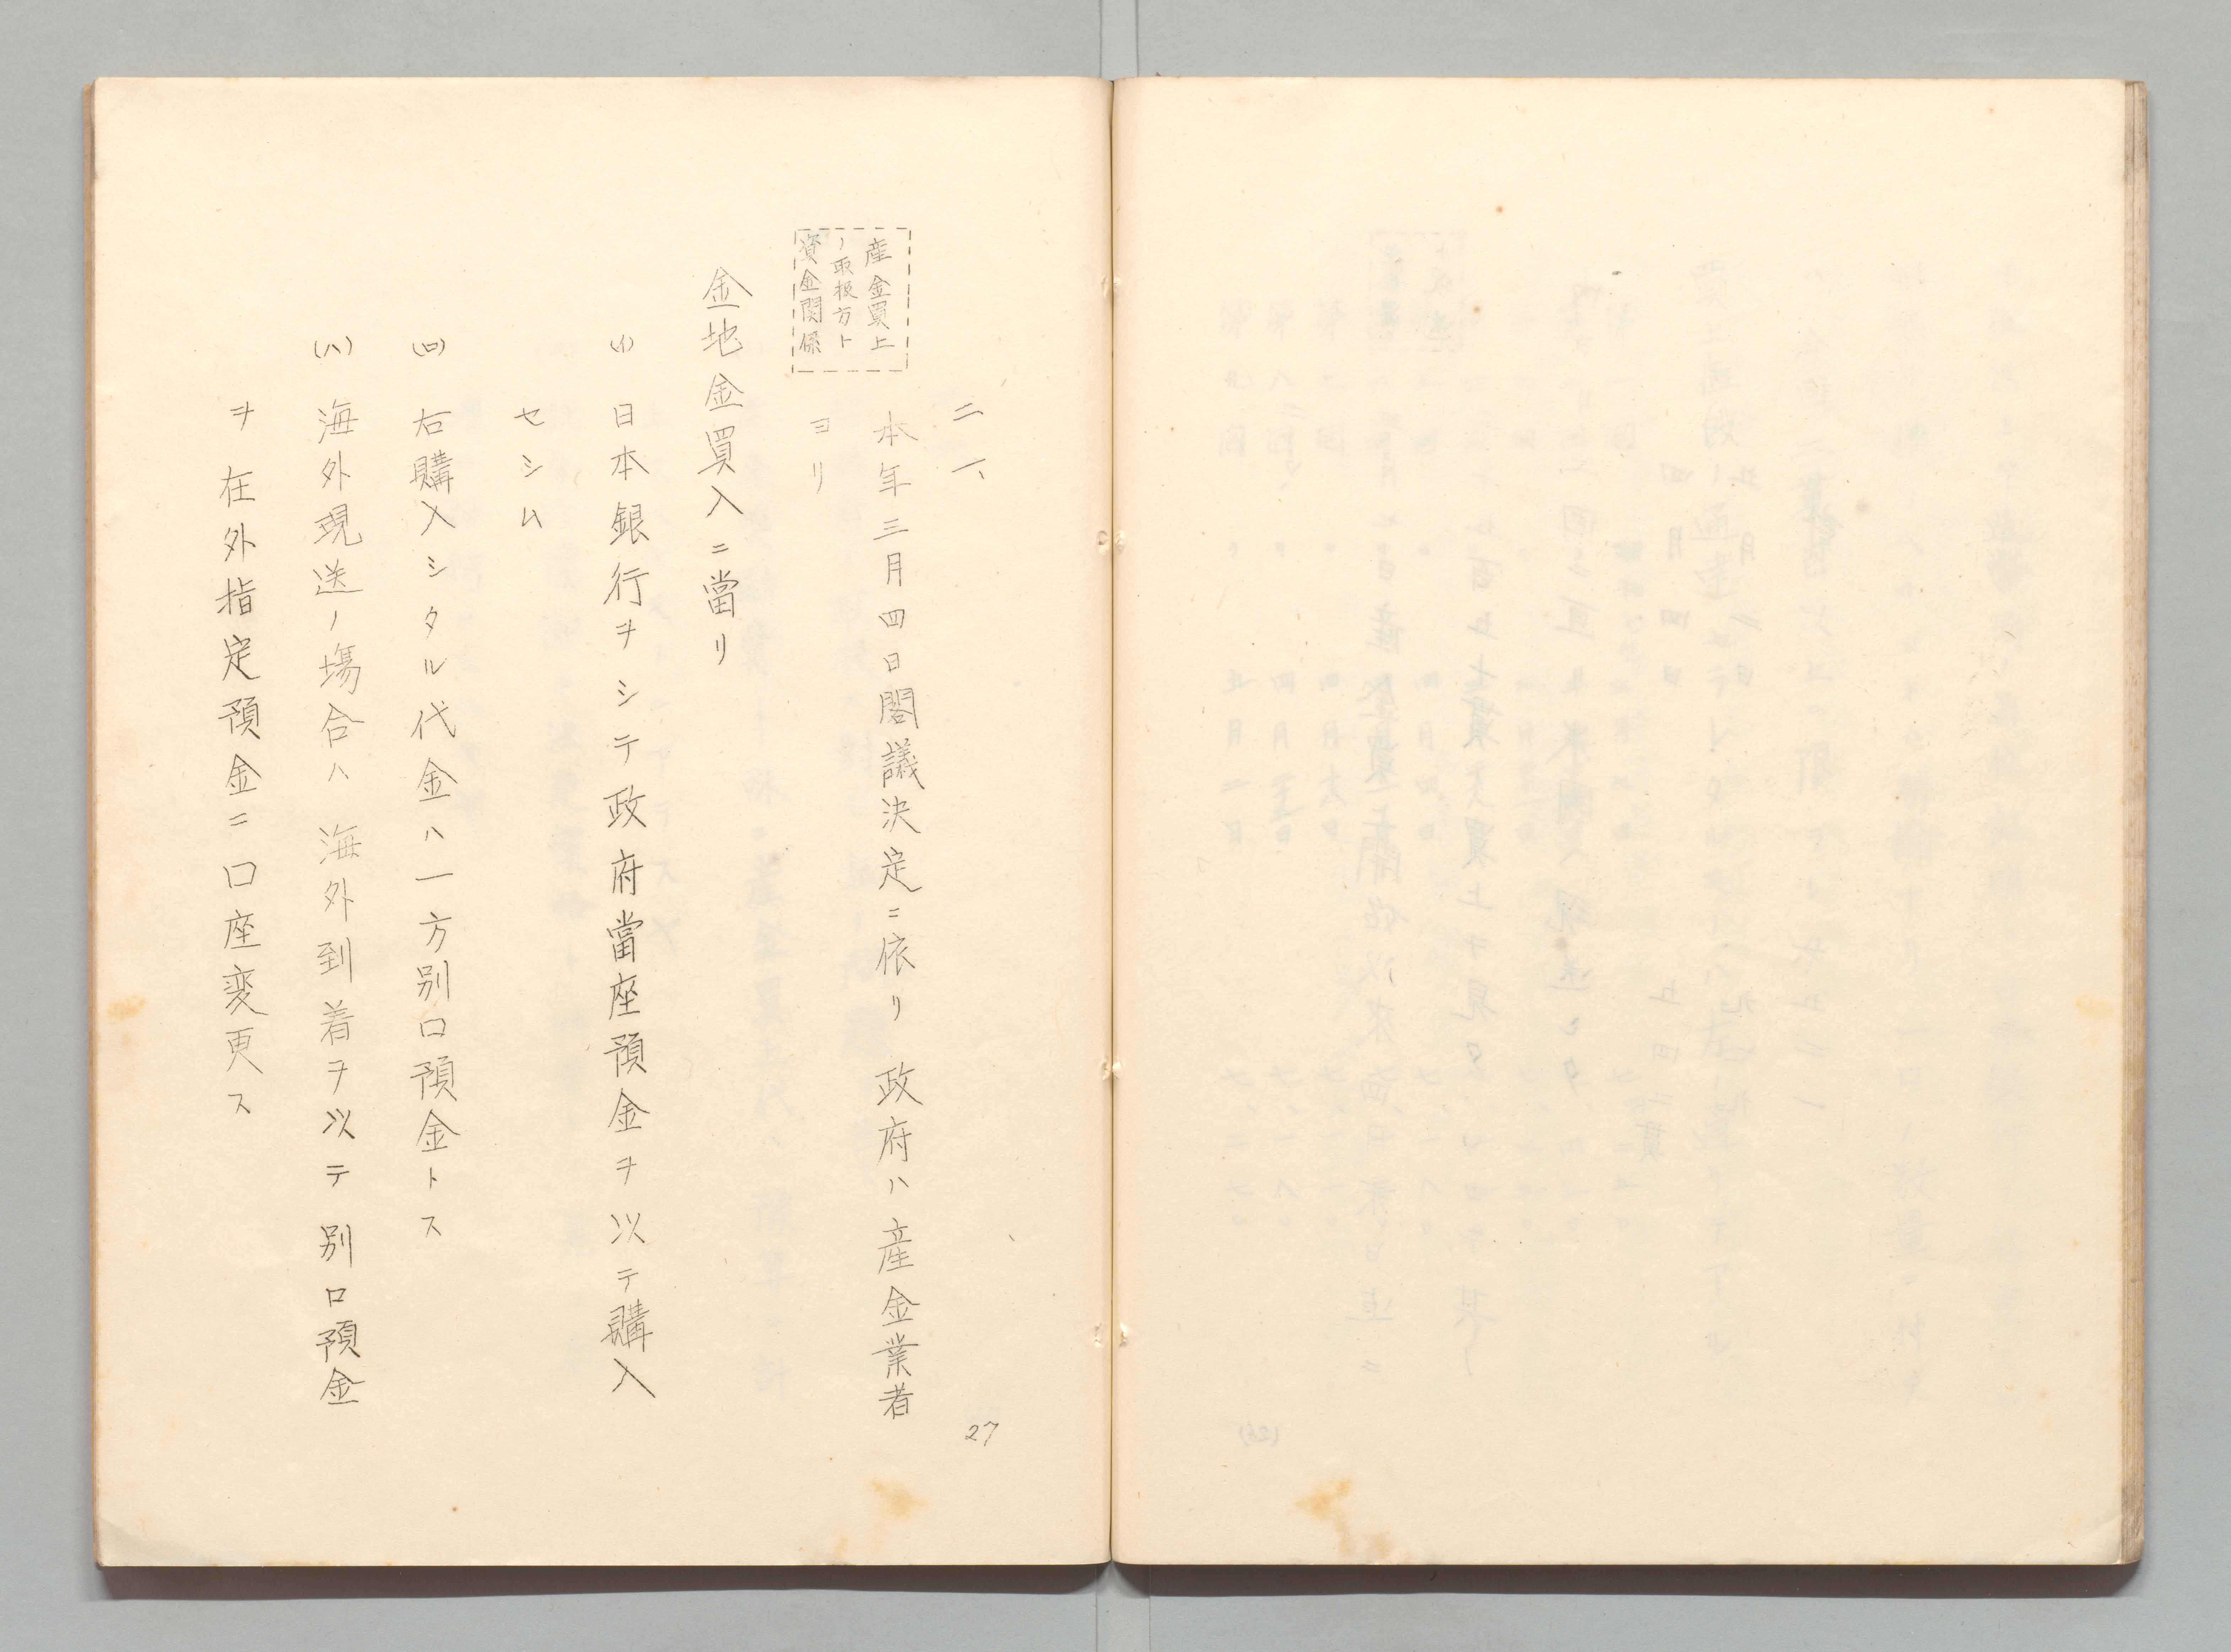 二一、
本年三月四日閣議決定ニ依リ政府ハ産金業者
ヨリ
産金買上
ノ取扱方ト
資金関係
金地金買入ニ當リ
(イ) 日本銀行ヲシテ政府當座預金ヲ以テ購入
セシム
(ロ) 右購入シタル代金ハ一方別口預金トス
(ハ) 海外現送ノ場合ハ海外到着ヲ以テ別口預金
ヲ在外指定預金ニ口座変更ス
27